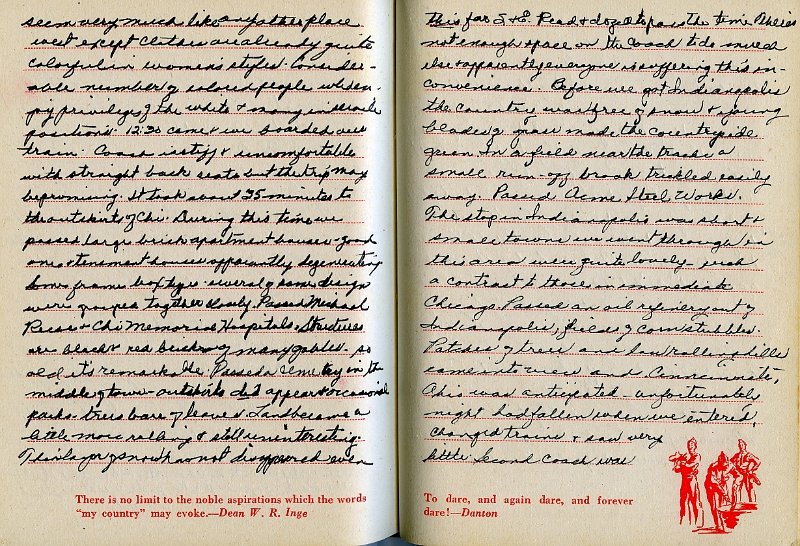 seem very much like any other place
west except clothes are already quite
colorful in women's styles. Consider-
able number of colored people when en-
joy privileges of the white & many in
positions. 12:30 came & we boarded our
train. Coach is stiff & uncomfortable
with straight back seats but the trip may
be promising. It took about 35 minutes to
the outskirts of Chi. During this time we
passed large brick apartment houses - good
ones & tenement houses apparently degenerating
down frame box types - several of same design
were grouped together closely. Passed Michael
Reese & Chi Memorial Hospitals. Structures
are black & red brick of many gables. So
old it's remarkable. Passed a cemetery in the
middle of town - outskirts did appear & occasional
parks - trees bare of leaves. Land became a
little more rolling & still uninteresting.
Traces of snow has not disappeared even
There is no limit to the noble aspirations which the words
"my country" may evoke.—Dean W. R. Inge
this far S & E. Read & dozed to pass the time. There is
not enough space on the coach to do much
else & apparently everyone is suffering this in-
convenience. Before we got Indianapolis
the country was free of snow & young
blades of grass made the countryside
green. In a field near the tracks a
small run-off brook trickled easily
away. Passed Acme Steel Works.
The stop in Indianapolis was short &
small towns we went through in
this area were quite lovely - such
a contrast to those in immediate
Chicago. Passed an oil refinery out of
Indianapolis, fields of corn stubbles.
Patches of trees and low rolling hills
came into view and Cincinnati,
Ohio was anticipated. Unfortunately
night had fallen when we entered,
changed trains & saw very
little. Second coach was
To dare, and again dare, and forever
dare!—Danton